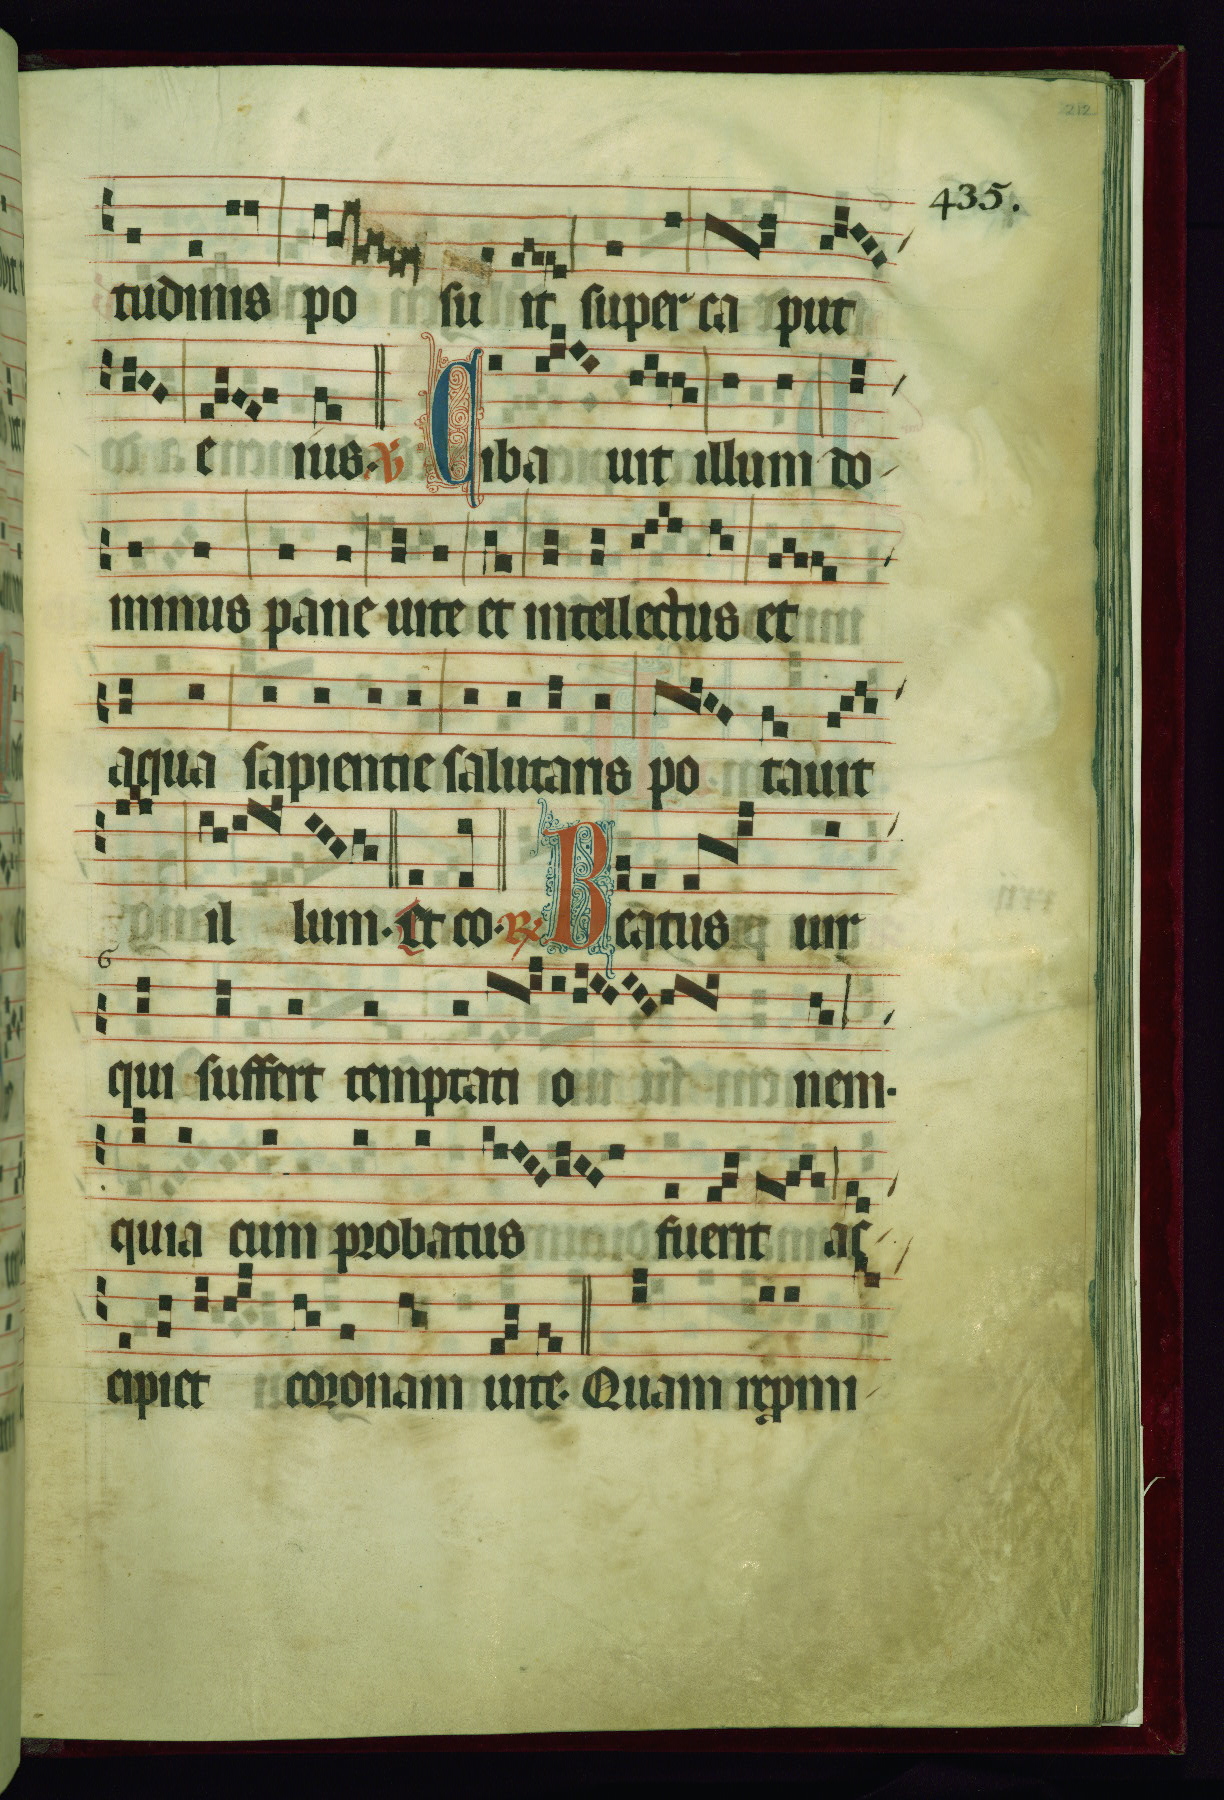 212
435.
tudinis po su it super ca put
e ius. V Ciba uit illum do
minus pane uite et intellectus et
aqua sapientie salutaris po tauit
il lum. Et co. R Beatus uir
6
qui suffert temptati o nem.
quia cum probatus fuerit ac
cipiet coronam uite. Quam repmi